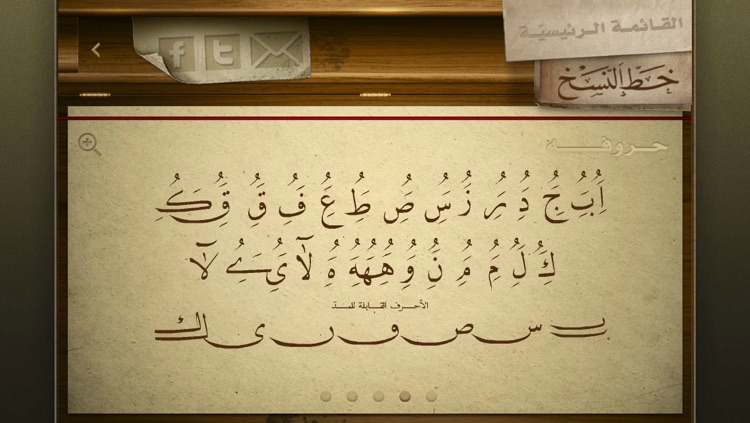 القائمة الرئيسيّة
خط النسخ
حروفه
أ ب ج د ر ز س ص ط ع ف ق ق ك
ك ل م م ن و ه ه ه ة لا ي ے لا
الأحرف القابلة للمدّ
ب س ص و ر ى ل ك